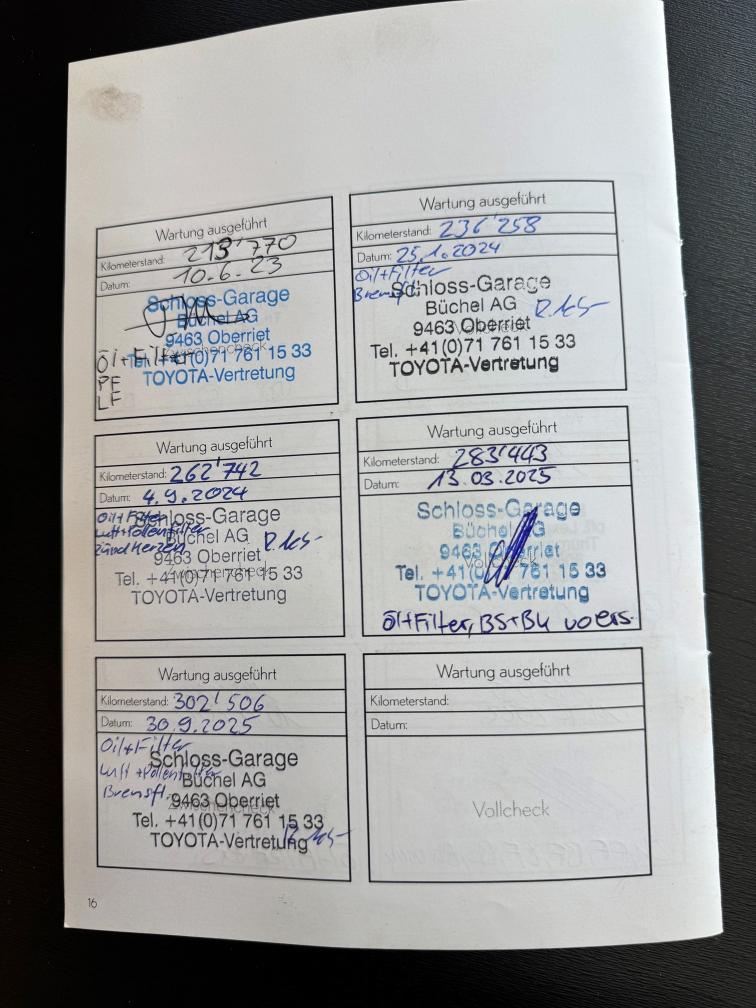 Wartung ausgeführt
Kilometerstand: 213'770
Datum: 10.6.23
Schloss-Garage
Büchel AG
9463 Oberriet
Tel. +41(0)71 761 15 33
TOYOTA-Vertretung
Öl+Filter
PF
LF
Wartung ausgeführt
Kilometerstand: 236'258
Datum: 25.1.2024
Oil+Filter
Bremsfl.
Schloss-Garage
Büchel AG
9463 Oberriet
Tel. +41(0)71 761 15 33
TOYOTA-Vertretung
Wartung ausgeführt
Kilometerstand: 262'742
Datum: 4.9.2024
Oil+Filter
Luft+Pollenfilter
Zündkerzen
Schloss-Garage
Büchel AG
9463 Oberriet
Zwischencheck
Tel. +41(0)71 761 15 33
TOYOTA-Vertretung
Wartung ausgeführt
Kilometerstand: 283'443
Datum: 13.03.2025
Schloss-Garage
Büchel AG
9463 Oberriet
Vollcheck
Tel. +41(0)71 761 15 33
TOYOTA-Vertretung
Öl+Filter, BS+BK
Wartung ausgeführt
Kilometerstand: 302'506
Datum: 30.9.2025
Oil+Filter
Luft+Pollenfilter
Bremsfl.
Schloss-Garage
Büchel AG
9463 Oberriet
Zwischencheck
Tel. +41(0)71 761 15 33
TOYOTA-Vertretung
Wartung ausgeführt
Kilometerstand:
Datum:
Vollcheck
16